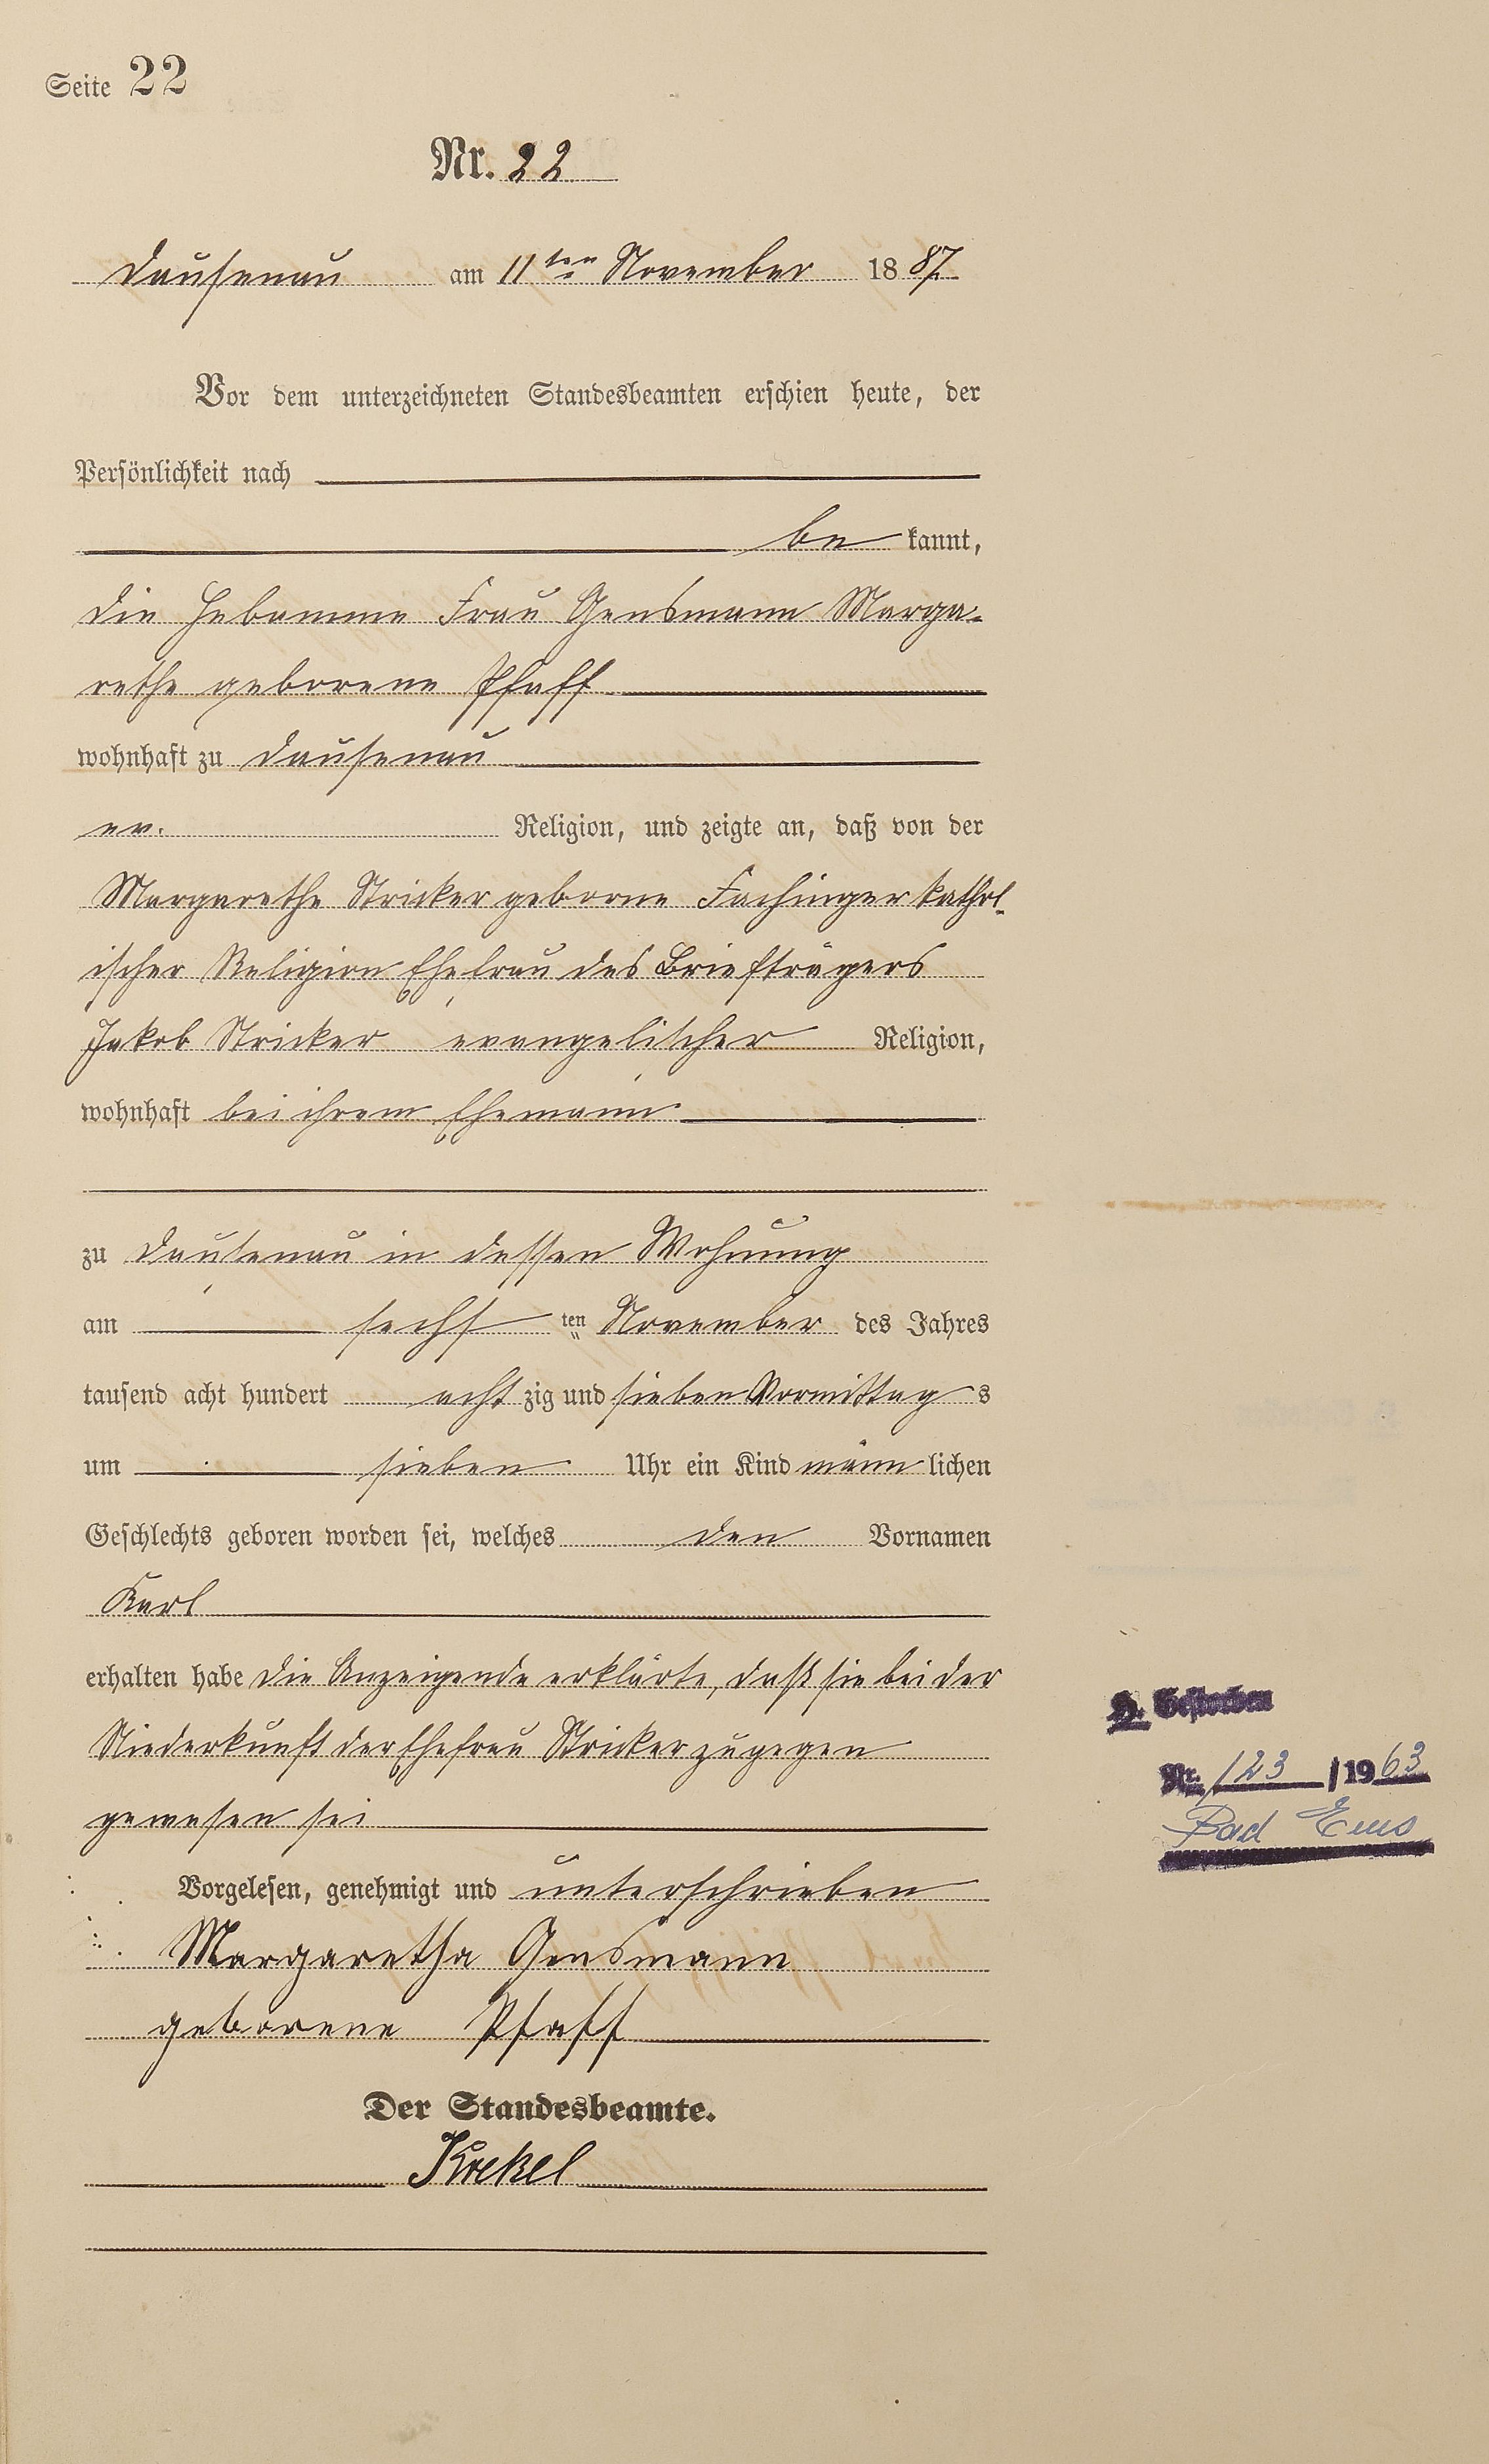 Seite 22
Nr. 22
Dausenau am 11ten November 1887
Vor dem unterzeichneten Standesbeamten erschien heute, der
Persönlichkeit nach
be kannt,
die Hebamme Frau Gensmann Marga-
rethe geborene Pfaff
wohnhaft zu Dausenau
ev. Religion, und zeigte an, daß von der
Margarethe Stricker geborne Fachinger kathol-
ischer Religion Ehefrau des Briefträgers
Jakob Stricker evangelischer Religion,
wohnhaft bei ihrem Ehemann
zu Dausenau in dessen Wohnung
am sechs ten November des Jahres
tausend acht hundert acht zig und sieben Vormittag s
um sieben Uhr ein Kind männ lichen
Geschlechts geboren worden sei, welches den Vornamen
Karl
erhalten habe die Anzeigende erklärte, daß sie bei der
Niederkunft der Ehefrau Stricker zugegen
gewesen sei
H. Gestorben
Nr. 123 /1963
Bad Ems
Vorgelesen, genehmigt und unterschrieben
Margaretha Gensmann
geborene Pfaff
Der Standesbeamte.
Krekel